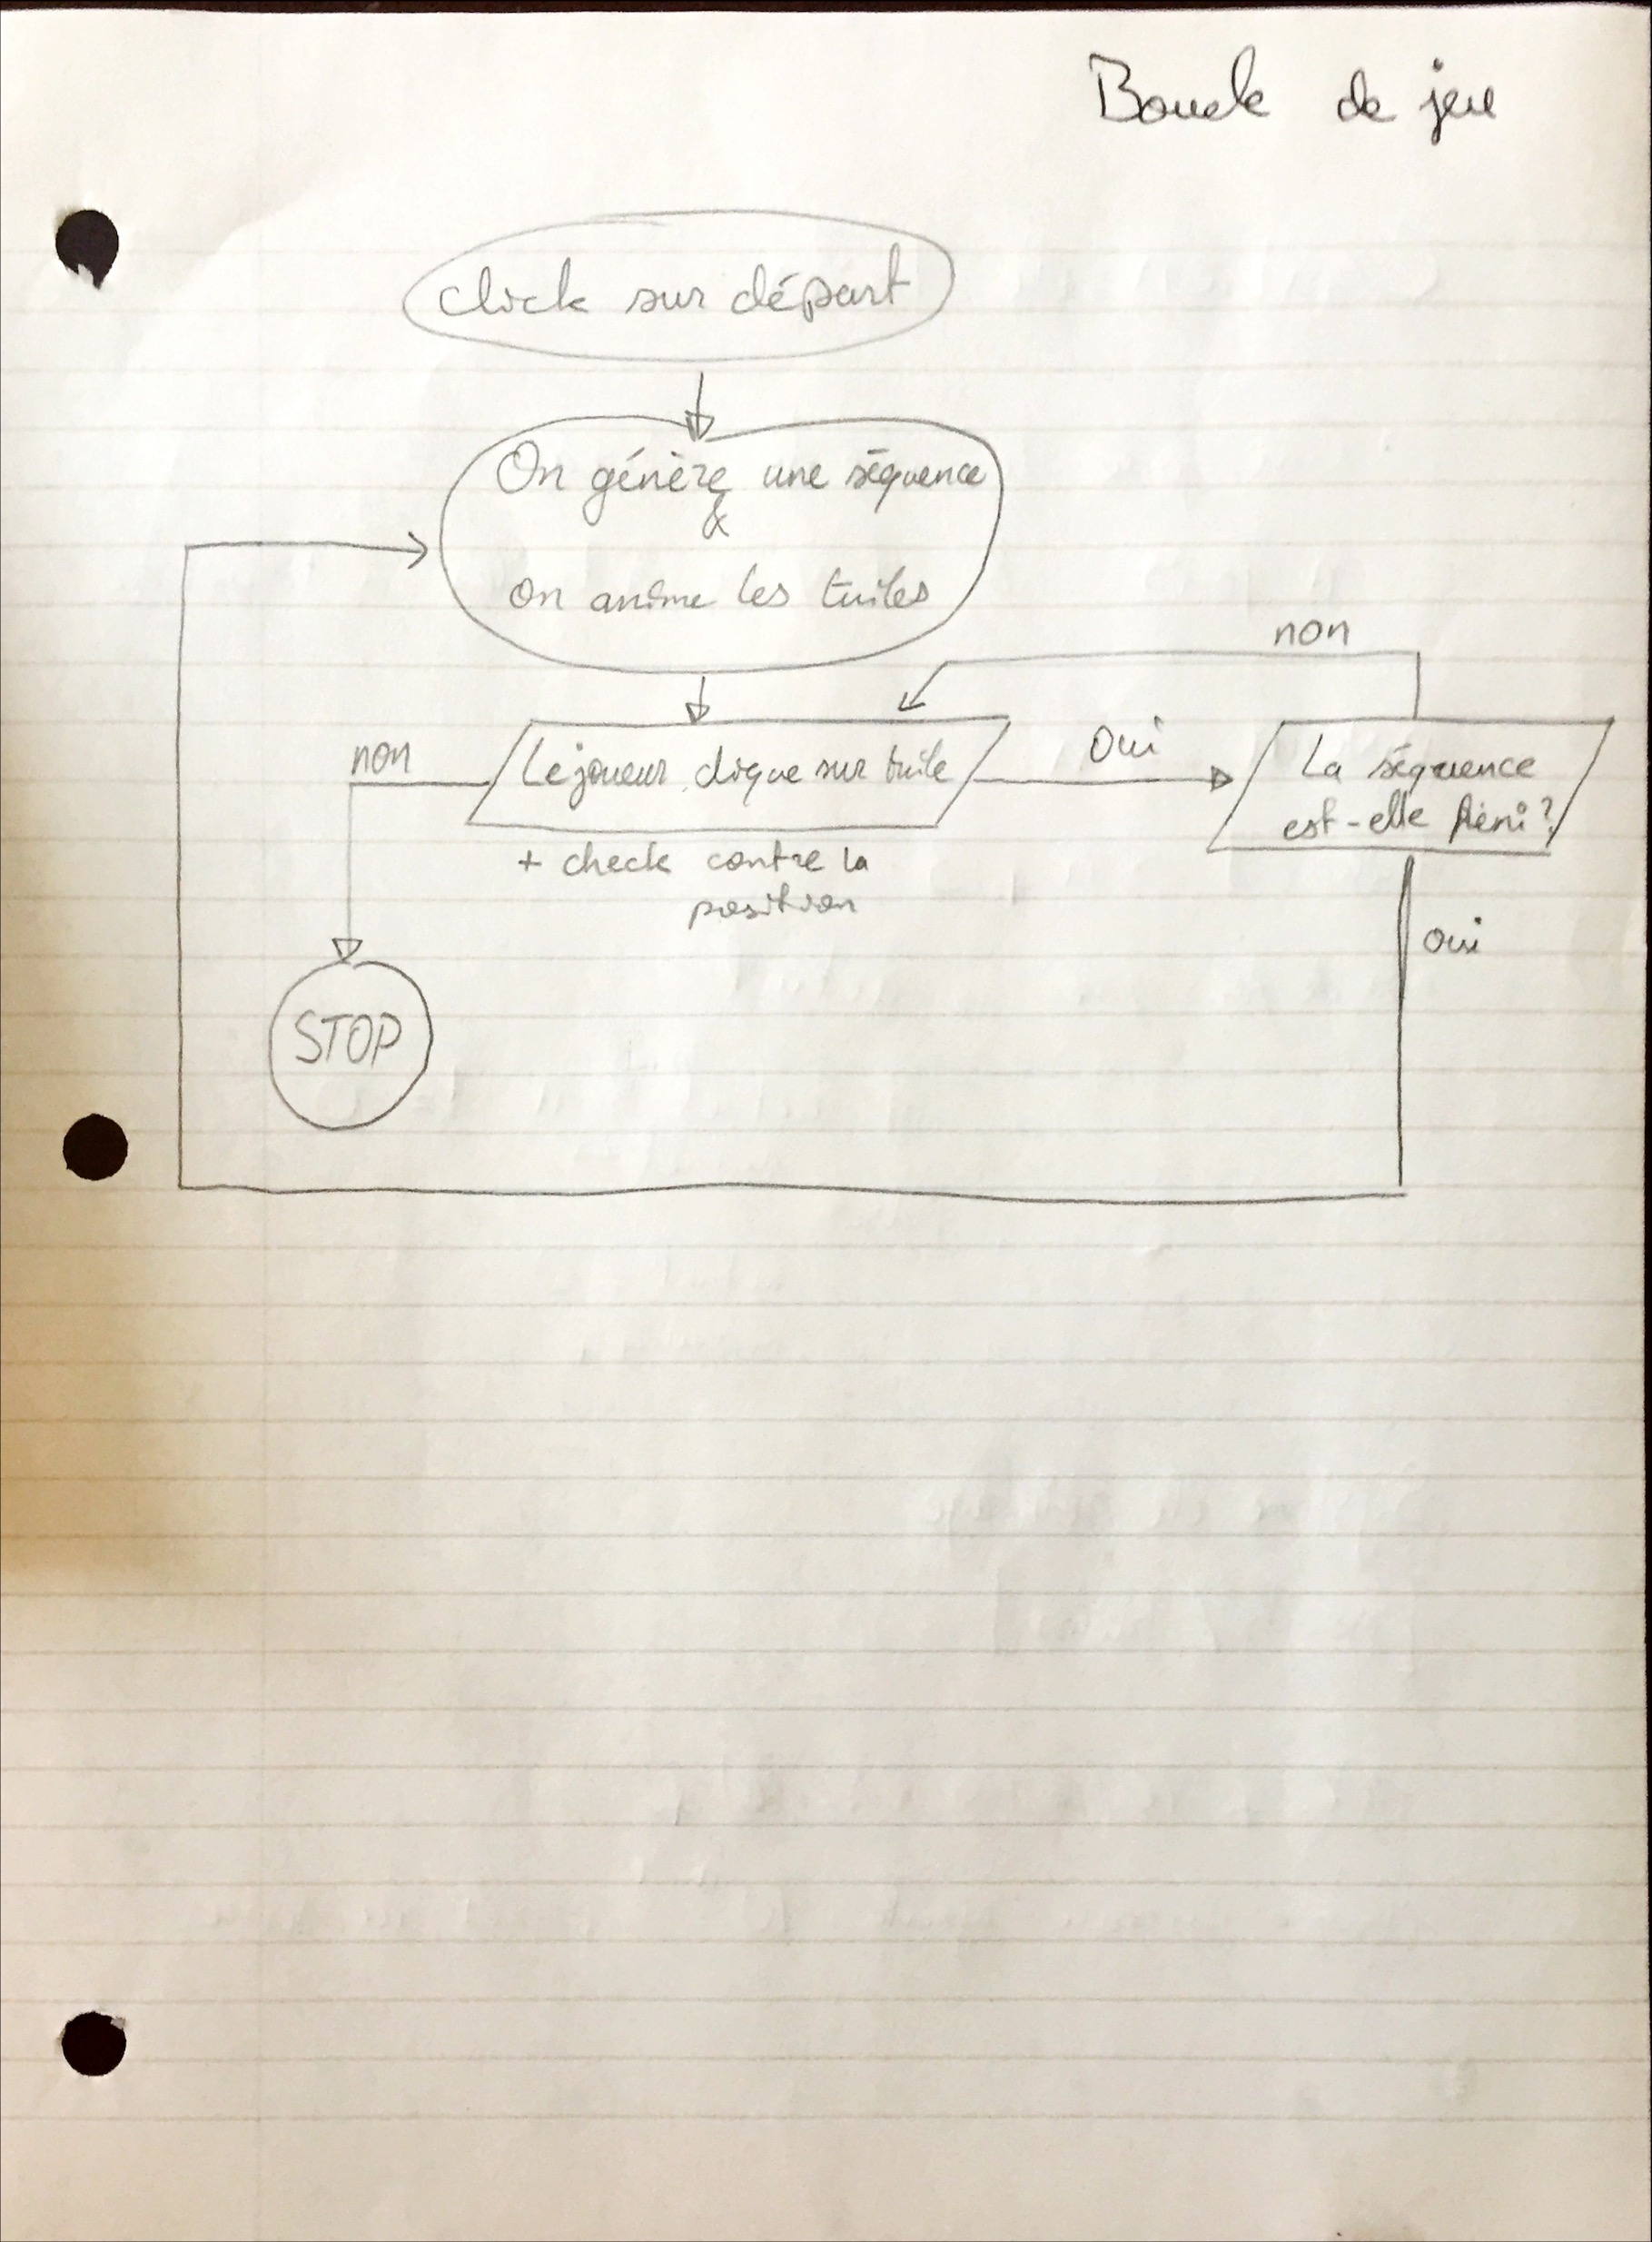 Boucle de jeu
click sur départ
On génère une séquence
&
on anime les tuiles
non
non
Le joueur clique sur tuile
Oui
La séquence
est-elle fini?
+ check contre la
position
oui
STOP